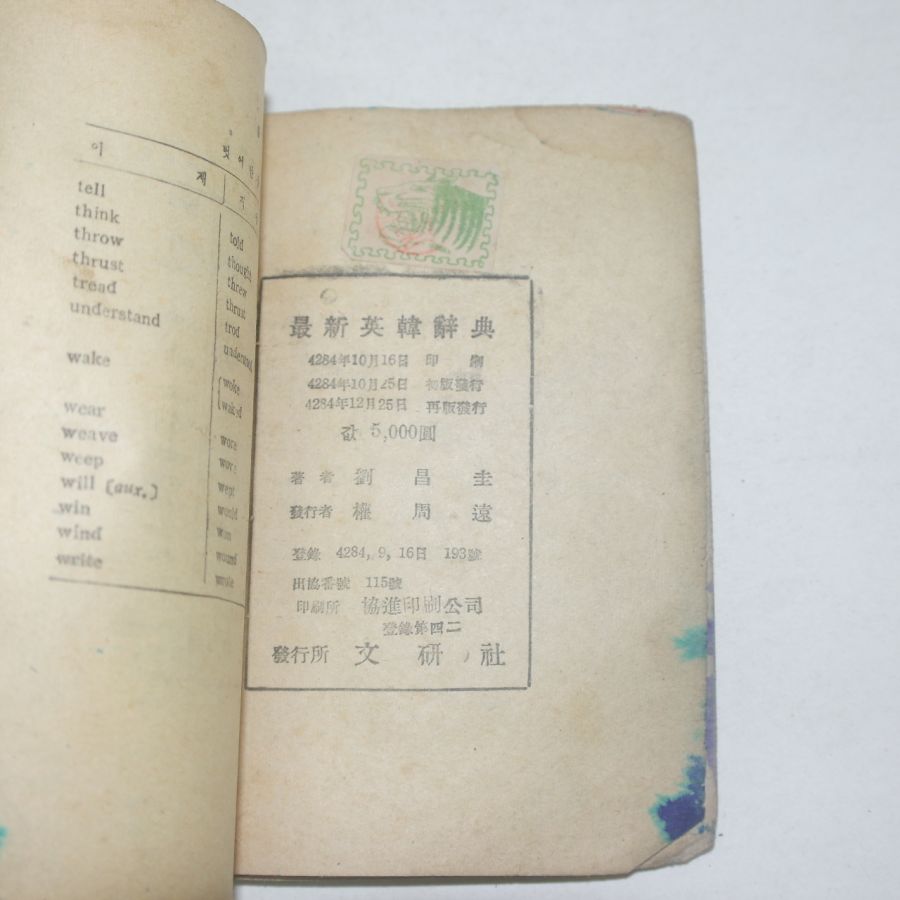 벗어난
이 제
지
tell
think
throw
thrust
tread
understand
wake
wear
weave
weep
will (aux.)
win
wind
write
told
thought
threw
thrust
trod
understood
woke
waked
wore
wove
wept
would
won
wound
wrote
最新英韓辭典
4284年10月16日 印刷
4284年10月25日 初版發行
4284年12月25日 再版發行
값 5,000圓
著者 劉昌圭
發行者 權周遠
登錄 4284, 9, 16日 193號
出協番號 115號
印刷所 協進印刷公司
登錄第四二
發行所 文硏社